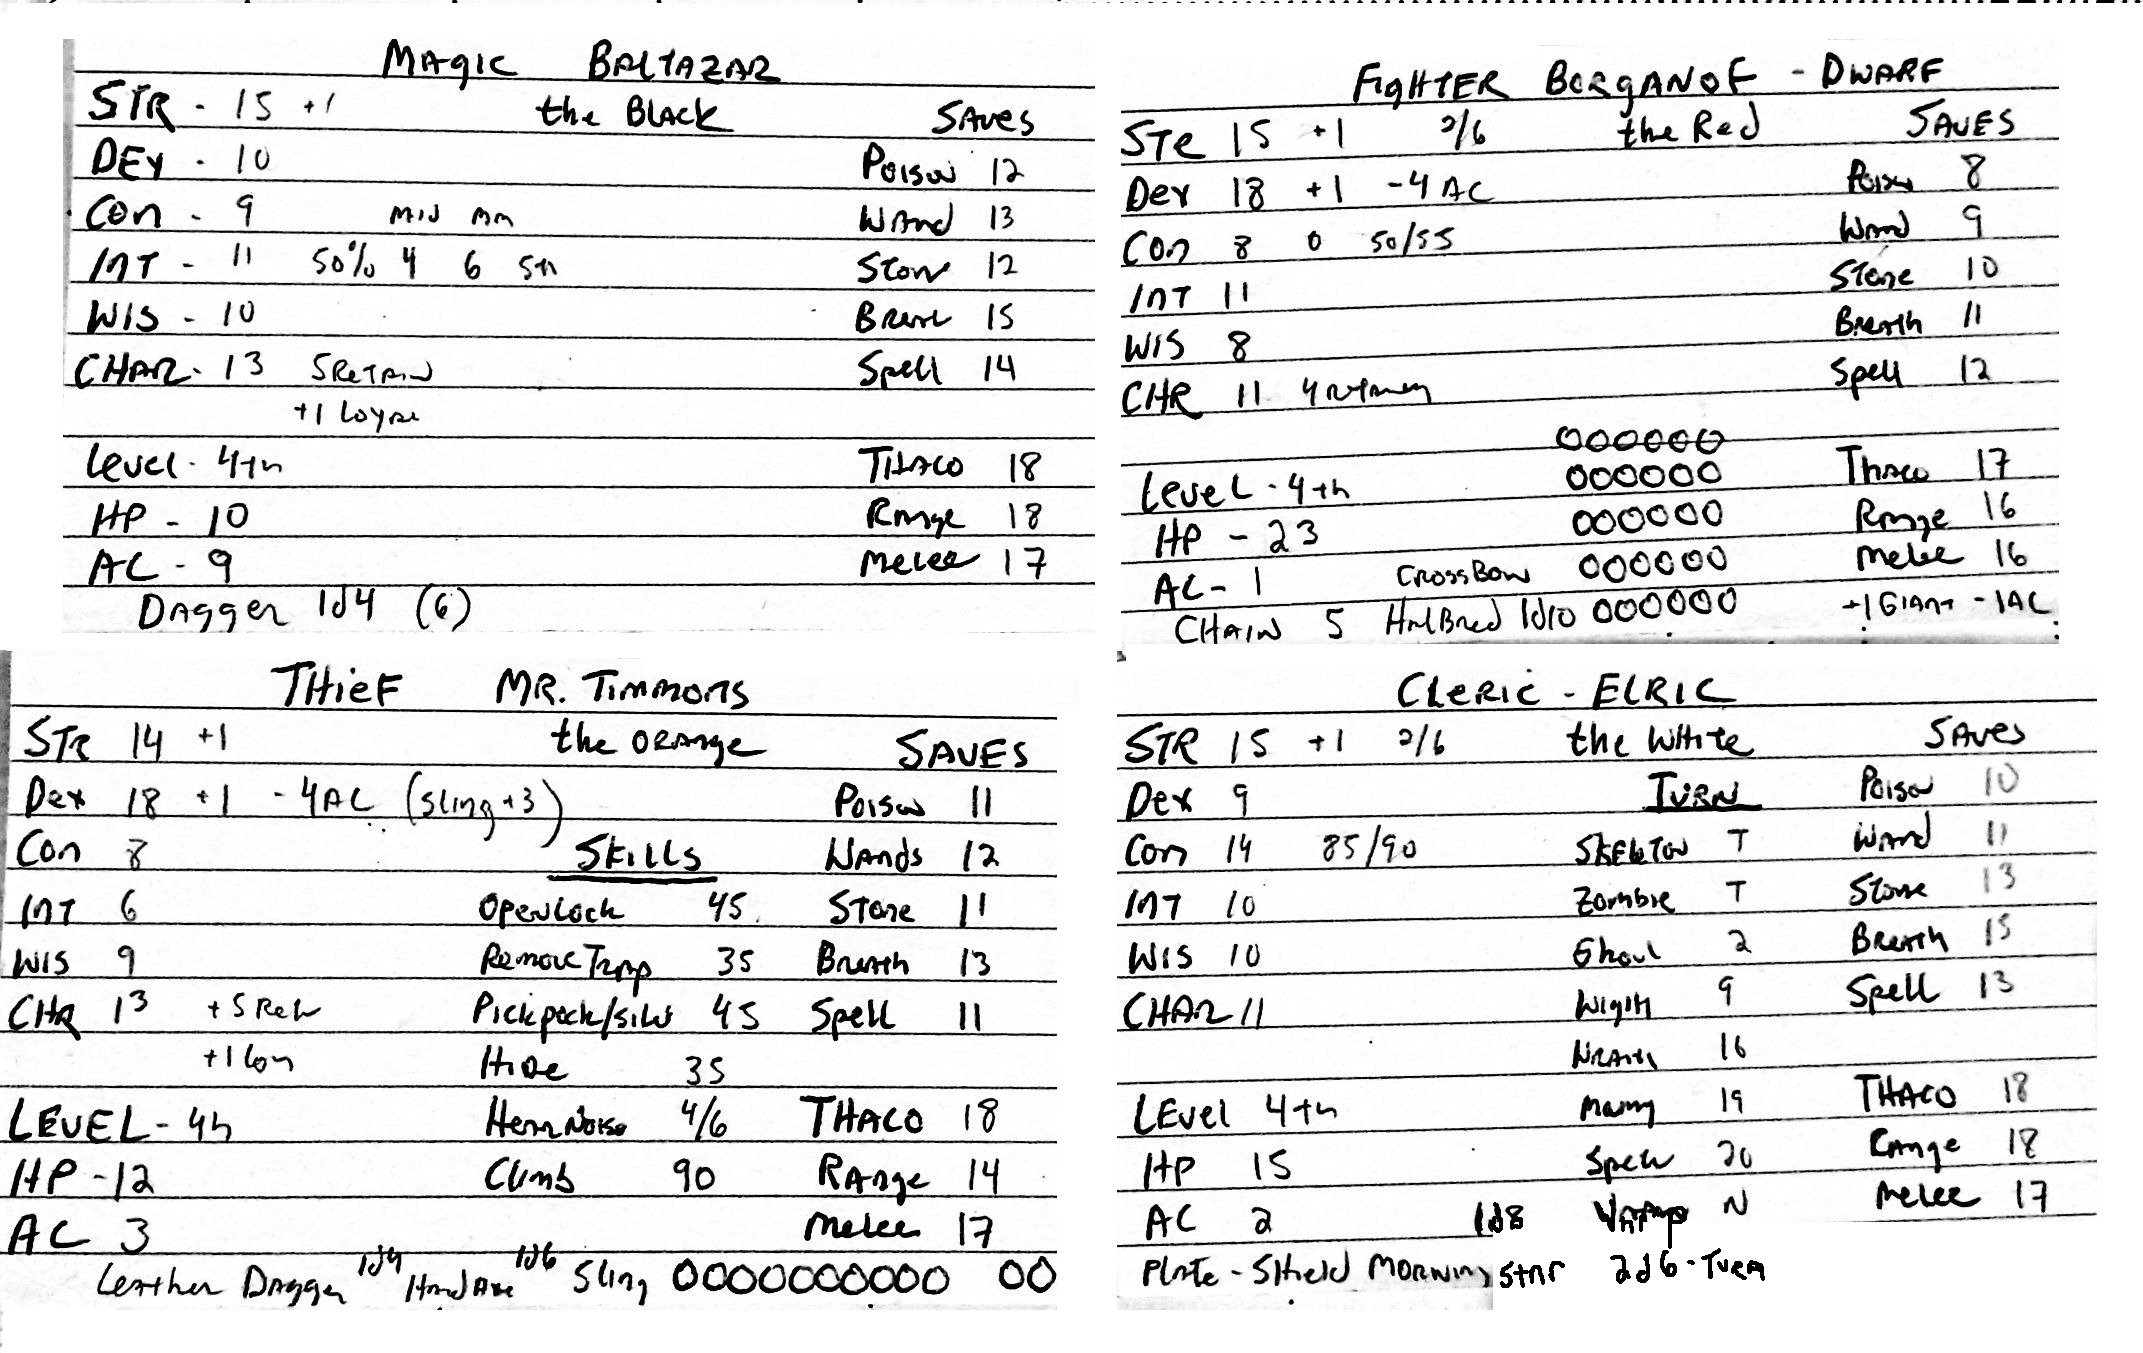 MAGIC BALTAZAR
STR - 15 +1 the BLACK SAVES
DEX - 10 Poison 12
Con - 9 MIN MA Wand 13
INT - 11 50% 4 6 5th Stone 12
WIS - 10 Breath 15
CHAR - 13 5 RETAIN Spell 14
+1 Loyal
Level - 4th THACO 18
HP - 10 Range 18
AC - 9 Melee 17
Dagger 1d4 (6)
FIGHTER BORGANOF - DWARF
STR 15 +1 2/6 the Red SAVES
Dex 18 +1 -4 AC Poison 8
Con 8 0 50/55 Wand 9
INT 11 Stone 10
WIS 8 Breath 11
CHR 11 4 Spell 12
OOOOOO
Level - 4th OOOOOO THACO 17
HP - 23 OOOOOO Range 16
AC - 1 CROSSBOW OOOOOO Melee 16
CHAIN 5 HALBRED 1d10 OOOOOO +1 GIANT -1AC
THIEF MR. TIMMONS
STR 14 +1 the ORANGE SAVES
Dex 18 +1 -4AC (Sling +3) Poison 11
Con 8 SKILLS Wands 12
INT 6 Open Lock 45 Stone 11
WIS 9 Remove Trap 35 Breath 13
CHR 13 +5 Ret Pickpock/Sile 45 Spell 11
+1 Loy Hide 35
LEVEL - 4th Hear Noise 4/6 THACO 18
HP - 12 Climb 90 RANGE 14
AC 3 Melee 17
Leather Dagger 1d4 Hand Axe 1d6 Sling OOOOOOOOOO OO
CLERIC - ELRIC
STR 15 +1 2/6 the White SAVES
Dex 9 TURN Poison 10
Con 14 85/90 SKELETON T Wand 11
INT 10 Zombie T Stone 13
WIS 10 Ghoul 2 Breath 15
CHAR 11 Wight 9 Spell 13
Wraith 16
LEVEL 4th Mummy 19 THACO 18
HP 15 Specter 20 Range 18
AC 2 1d8 Vamp N Melee 17
Plate - Shield MORNING Star 2d6 - Turn